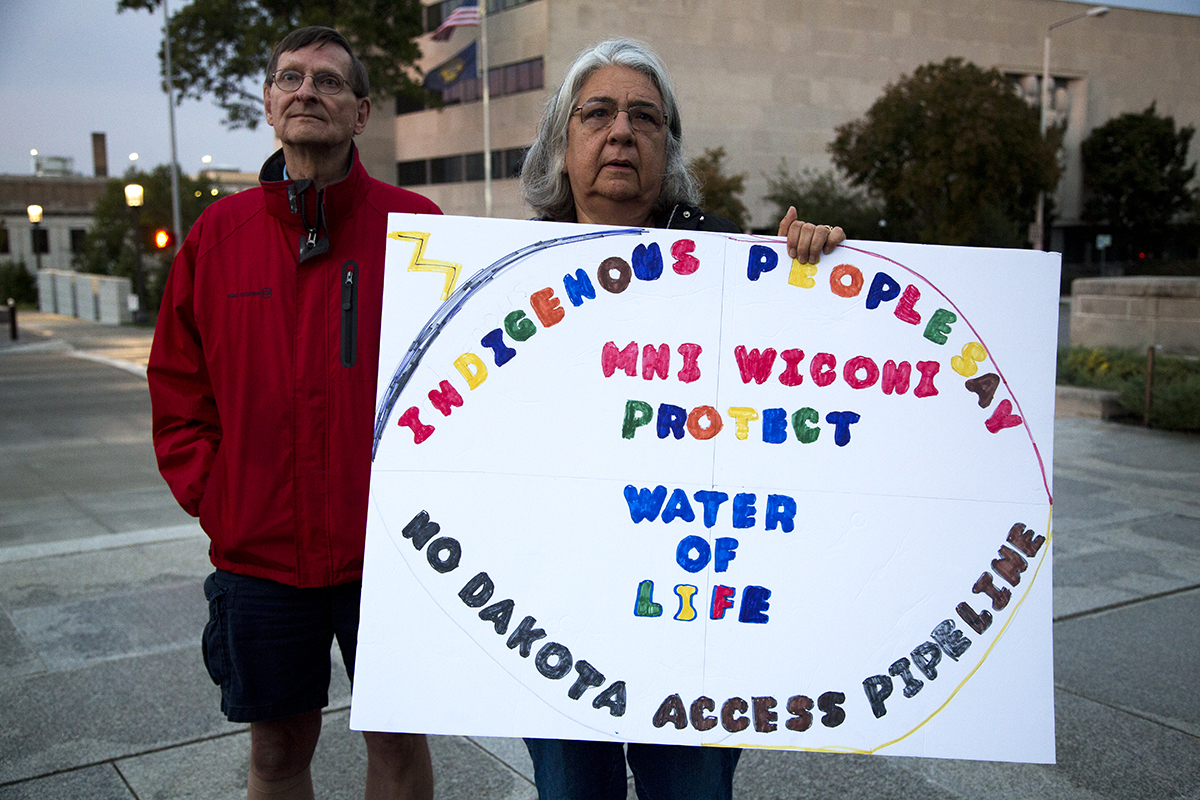 INDIGENOUS PEOPLE SAY
MNI WICONI
PROTECT
WATER
OF
LIFE
NO DAKOTA ACCESS PIPELINE